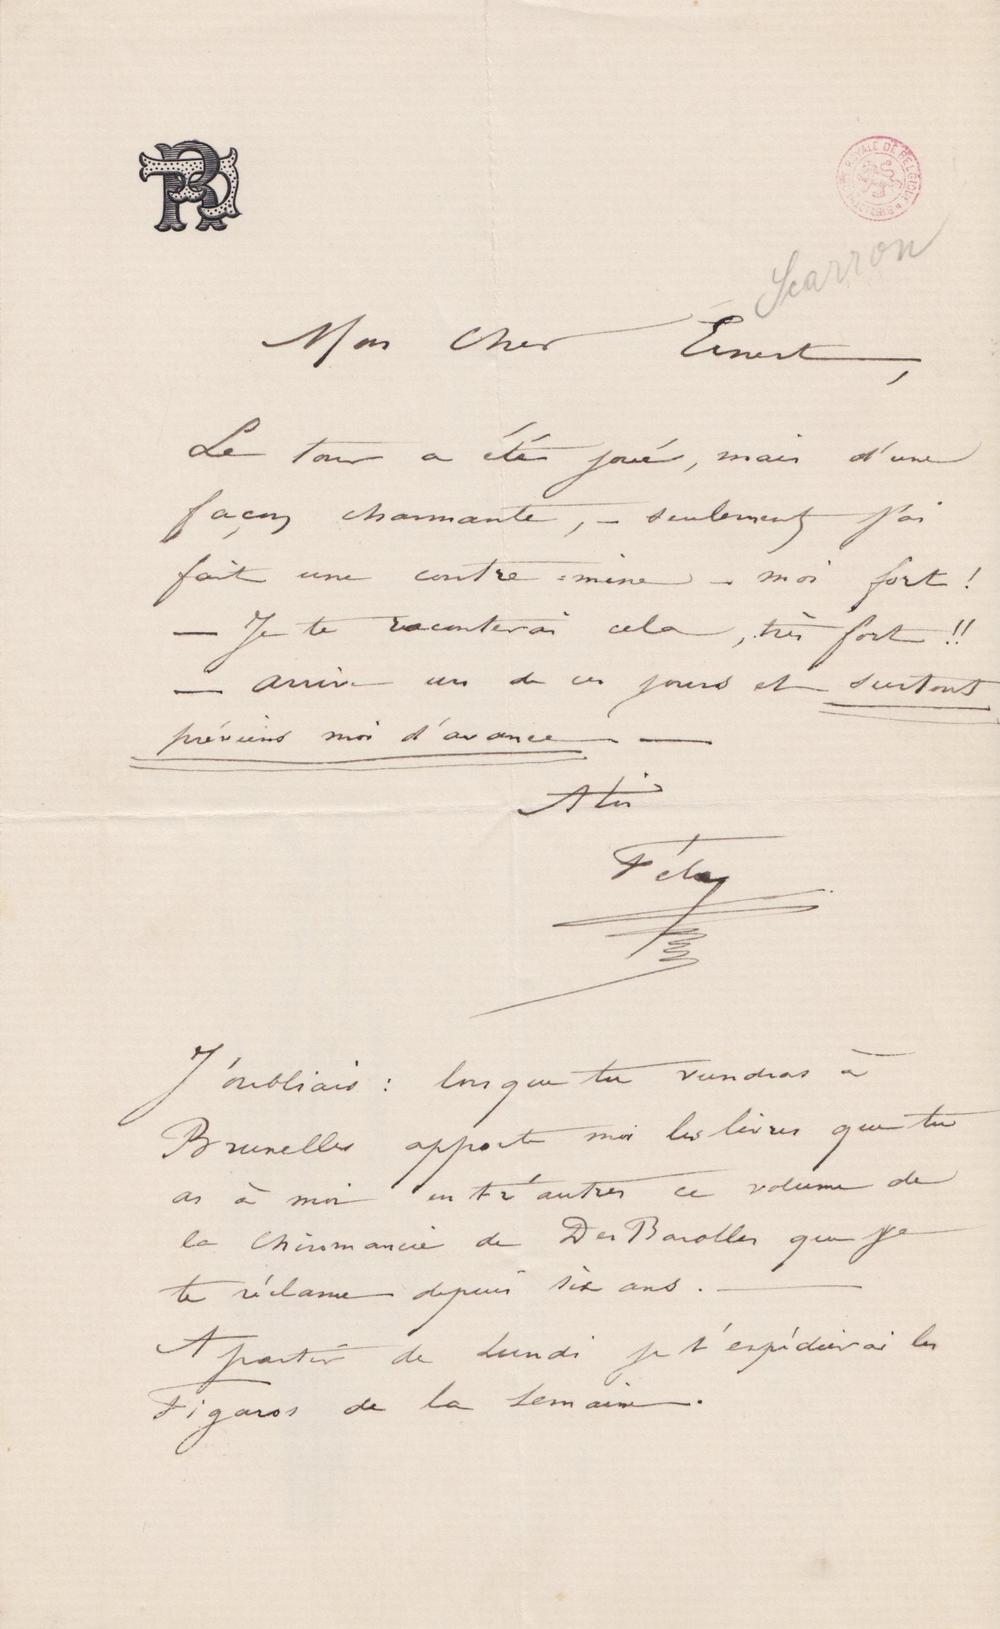 ROYALE DE BELGIQUE
Scarron
Mon cher Ernest,
Le tour a été joué, mais d'une
façon charmante, – seulement j'ai
fait une contre-mine – moi fort !
— Je te raconterai cela, très fort !!
— arrive un de ces jours et surtout
préviens moi d'avance —
A toi
Fély
J'oubliais : lorsque tu viendras à
Bruxelles apporte moi les livres que tu
as à moi entr'autres ce volume de
la chiromancie de Des Barolles que je
te réclame depuis six ans. —
A partir de Lundi je t'expédierai les
Figaros de la semaine.